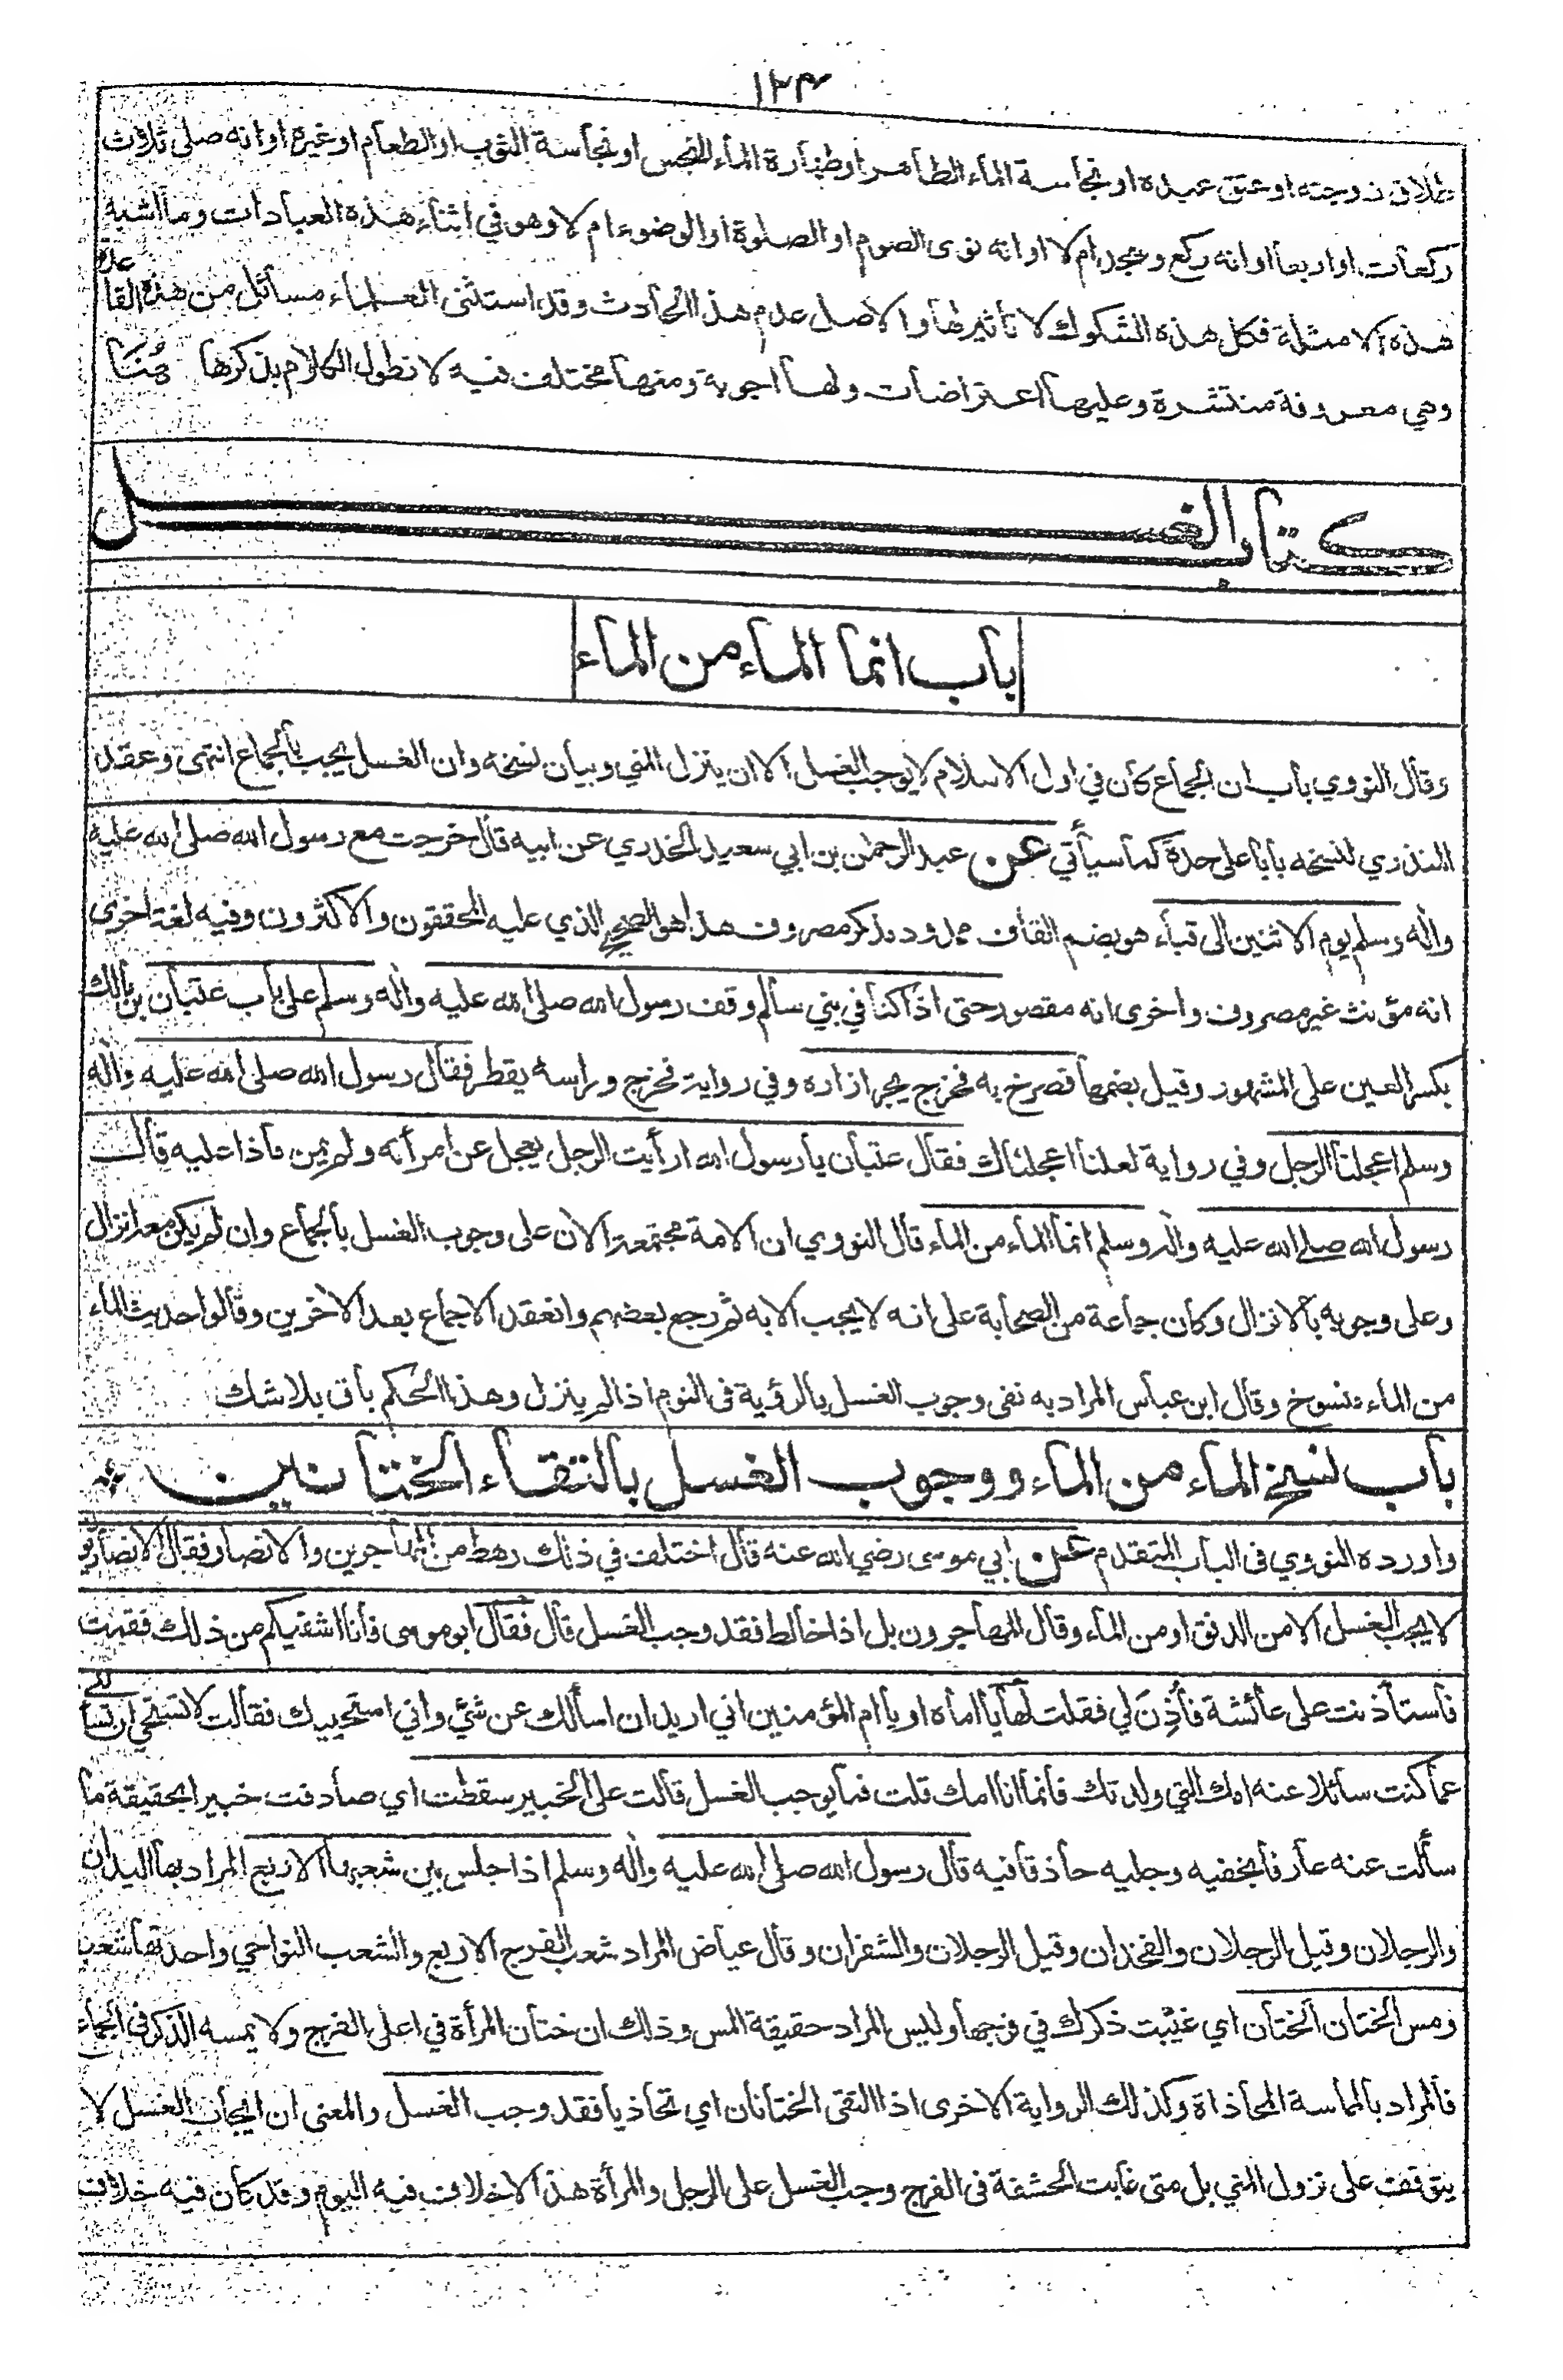 ١٢٤
طلاق زوجته او عتق عبده او نجاسة الماء الطاهر او طهارة الماء النجس او نجاسة الثوب او الطعام او غيره او انه صلى ثلاث
ركعات او اربعا او انه ركع وسجد ام لا او انه نوى الصوم او الصلوة او الوضوء ام لا وهو في اثناء هذه العبادات وما اشبه
هذه الامثلة فكل هذه الشكوك لا تأثير لها والاصل عدم هذا الحادث وقد استثنى العلماء مسائل من هذه القاعدة
وهي معروفة منتشرة وعليها اعتراضات ولها اجوبة ومنها مختلف فيه لا نطول الكلام بذكرها هُنَا
كتاب الغسل
باب انما الماء من الماء
وقال النووي باب ان الجماع كان في اول الاسلام لا يوجب الغسل الا ان ينزل المني وبيان نسخه وان الغسل يجب بالجماع انتهى وعقد
المنذري لنسخه بابا على حدة كما سيأتي عن عبد الرحمن بن ابي سعيد الخدري عن ابيه قال خرجت مع رسول الله صلى الله عليه
واله وسلم يوم الاثنين الى قباء هو بضم القاف ممدود مذكر مصروف هذا هو الصحيح الذي عليه المحققون والاكثرون وفيه لغة اخرى
انه مؤنث غير مصروف واخرى انه مقصور حتى اذا كنا في بني سالم وقف رسول الله صلى الله عليه واله وسلم على باب عتبان بن مالك
بكسر العين على المشهور وقيل بضمها فصرخ به فخرج يجر ازاره وفي رواية فخرج وراسه يقطر فقال رسول الله صلى الله عليه واله
وسلم اعجلنا الرجل وفي رواية لعلنا اعجلناك فقال عتبان يا رسول الله ارأيت الرجل يعجل عن امرأته ولم يمن ماذا عليه قال
رسول الله صلى الله عليه واله وسلم انما الماء من الماء قال النووي ان الامة مجتمعة الان على وجوب الغسل بالجماع وان لم يكن معه انزال
وعلى وجوبه بالانزال وكان جماعة من الصحابة على انه لا يجب الا به ثم رجع بعضهم وانعقد الاجماع بعد الاخرين وقالوا حديث الماء
من الماء منسوخ وقال ابن عباس المراد به نفى وجوب الغسل بالرؤية فى النوم اذا لم ينزل وهذا الحكم باق بلا شك
باب نسخ الماء من الماء ووجوب الغسل بالتقاء الختانين
واورده النووي فى الباب المتقدم عن ابي موسى رضي الله عنه قال اختلف في ذلك رهط من المهاجرين والانصار فقال الانصاريون
لا يجب الغسل الا من الدفق او من الماء وقال المهاجرون بل اذا خالط فقد وجب الغسل قال فقال ابو موسى فانا اشفيكم من ذلك فقمت
فاستأذنت على عائشة فأُذِنَ لي فقلت لها يا اماه او يا ام المؤمنين اني اريد ان اسألك عن شئ واني استحييك فقالت لا تستحي ان تسألني
عما كنت سائلا عنه امك التي ولدتك فانما انا امك قلت فما يوجب الغسل قالت على الخبير سقطت اي صادفت خبيرا بحقيقة ما
سألت عنه عارفا بخفيه وجليه حاذقا فيه قال رسول الله صلى الله عليه واله وسلم اذا جلس بين شعبها الاربع المراد بها اليدان
والرجلان وقيل الرجلان والفخذان وقيل الرجلان والشفران وقال عياض المراد شعب الفرج الاربع والشعب النواحي واحدتها شعبة
ومس الختان الختان اي غيبت ذكرك في فرجها وليس المراد حقيقة المس وذلك ان ختان المرأة في اعلى الفرج ولا يمسه الذكر في الجماع
فالمراد بالمماسة المحاذاة وكذلك الرواية الاخرى اذا التقى الختانان اي تحاذيا فقد وجب الغسل والمعنى ان ايجاب الغسل لا
يتوقف على نزول المني بل متى غابت الحشفة فى الفرج وجب الغسل على الرجل والمرأة هذا لا خلاف فيه اليوم وقد كان فيه خلاف